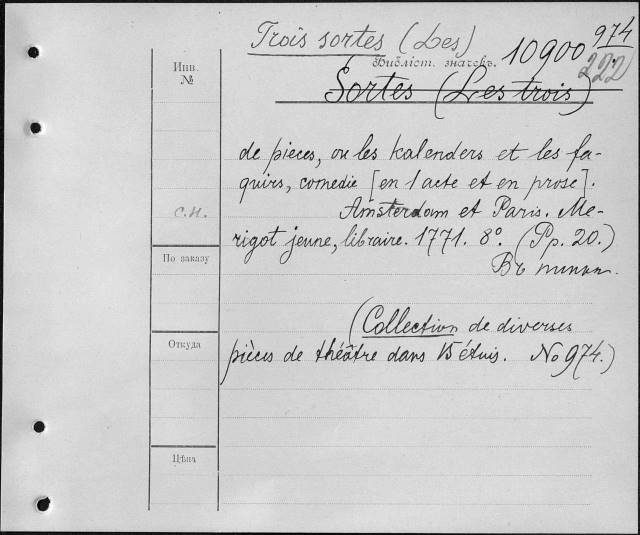 Trois sortes (Les)
974
222
Библіот. значекъ. 10900
Sortes (Les trois)
Инв.
№
de pieces, ou les kalenders et les fa-
quirs, comedie [en 1 acte et en prose].
с.н.
Amsterdam et Paris. Me-
rigot jeune, libraire. 1771. 8°. (Pp. 20.)
По заказу
Въ
(Collection de diverses
Откуда
pièces de théâtre dans 15 étuis. No 974.)
Цѣна